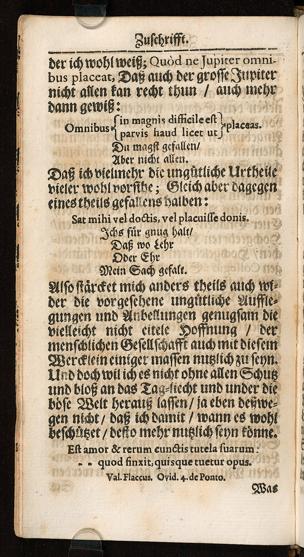 Zuschrifft.
der ich wohl weiß; Quòd ne Jupiter omni-
bus placeat, Daß auch der grosse Jupiter
nicht allen kan recht thun / auch mehr
dann gewiß:
Omnibus { in magnis difficile est } placeas.
parvis haud licet ut
Du magst gefallen/
Aber nicht allen.
Daß ich vielmehr die ungütliche Urtheile
vieler wohl vorsihe; Gleich aber dagegen
eines theils gefallens halben:
Sat mihi vel doctis, vel placuisse donis.
Ichs für gnug halt/
Daß wo Lehr
Oder Ehr
Mein Sach gefalt.
Also stärcket mich anders theils auch wi-
der die vorgesehene ungütliche Auffle-
gungen und Anbellungen genugsam die
vielleicht nicht eitele Hoffnung / der
menschlichen Gesellschafft auch mit diesem
Wercklein einiger massen nutzlich zu seyn.
Und doch wil ich es nicht ohne allen Schutz
und bloß an das Tag-liecht und under die
böse Welt herauß lassen / ja eben deßwe-
gen nicht / daß ich damit / wann es wohl
beschützet / desto mehr nutzlich seyn könne.
Est amor & rerum cunctis tutela suarum:
- - quod finxit, quisque tuetur opus.
Val. Flaccus. Ovid. 4. de Ponto.
Was